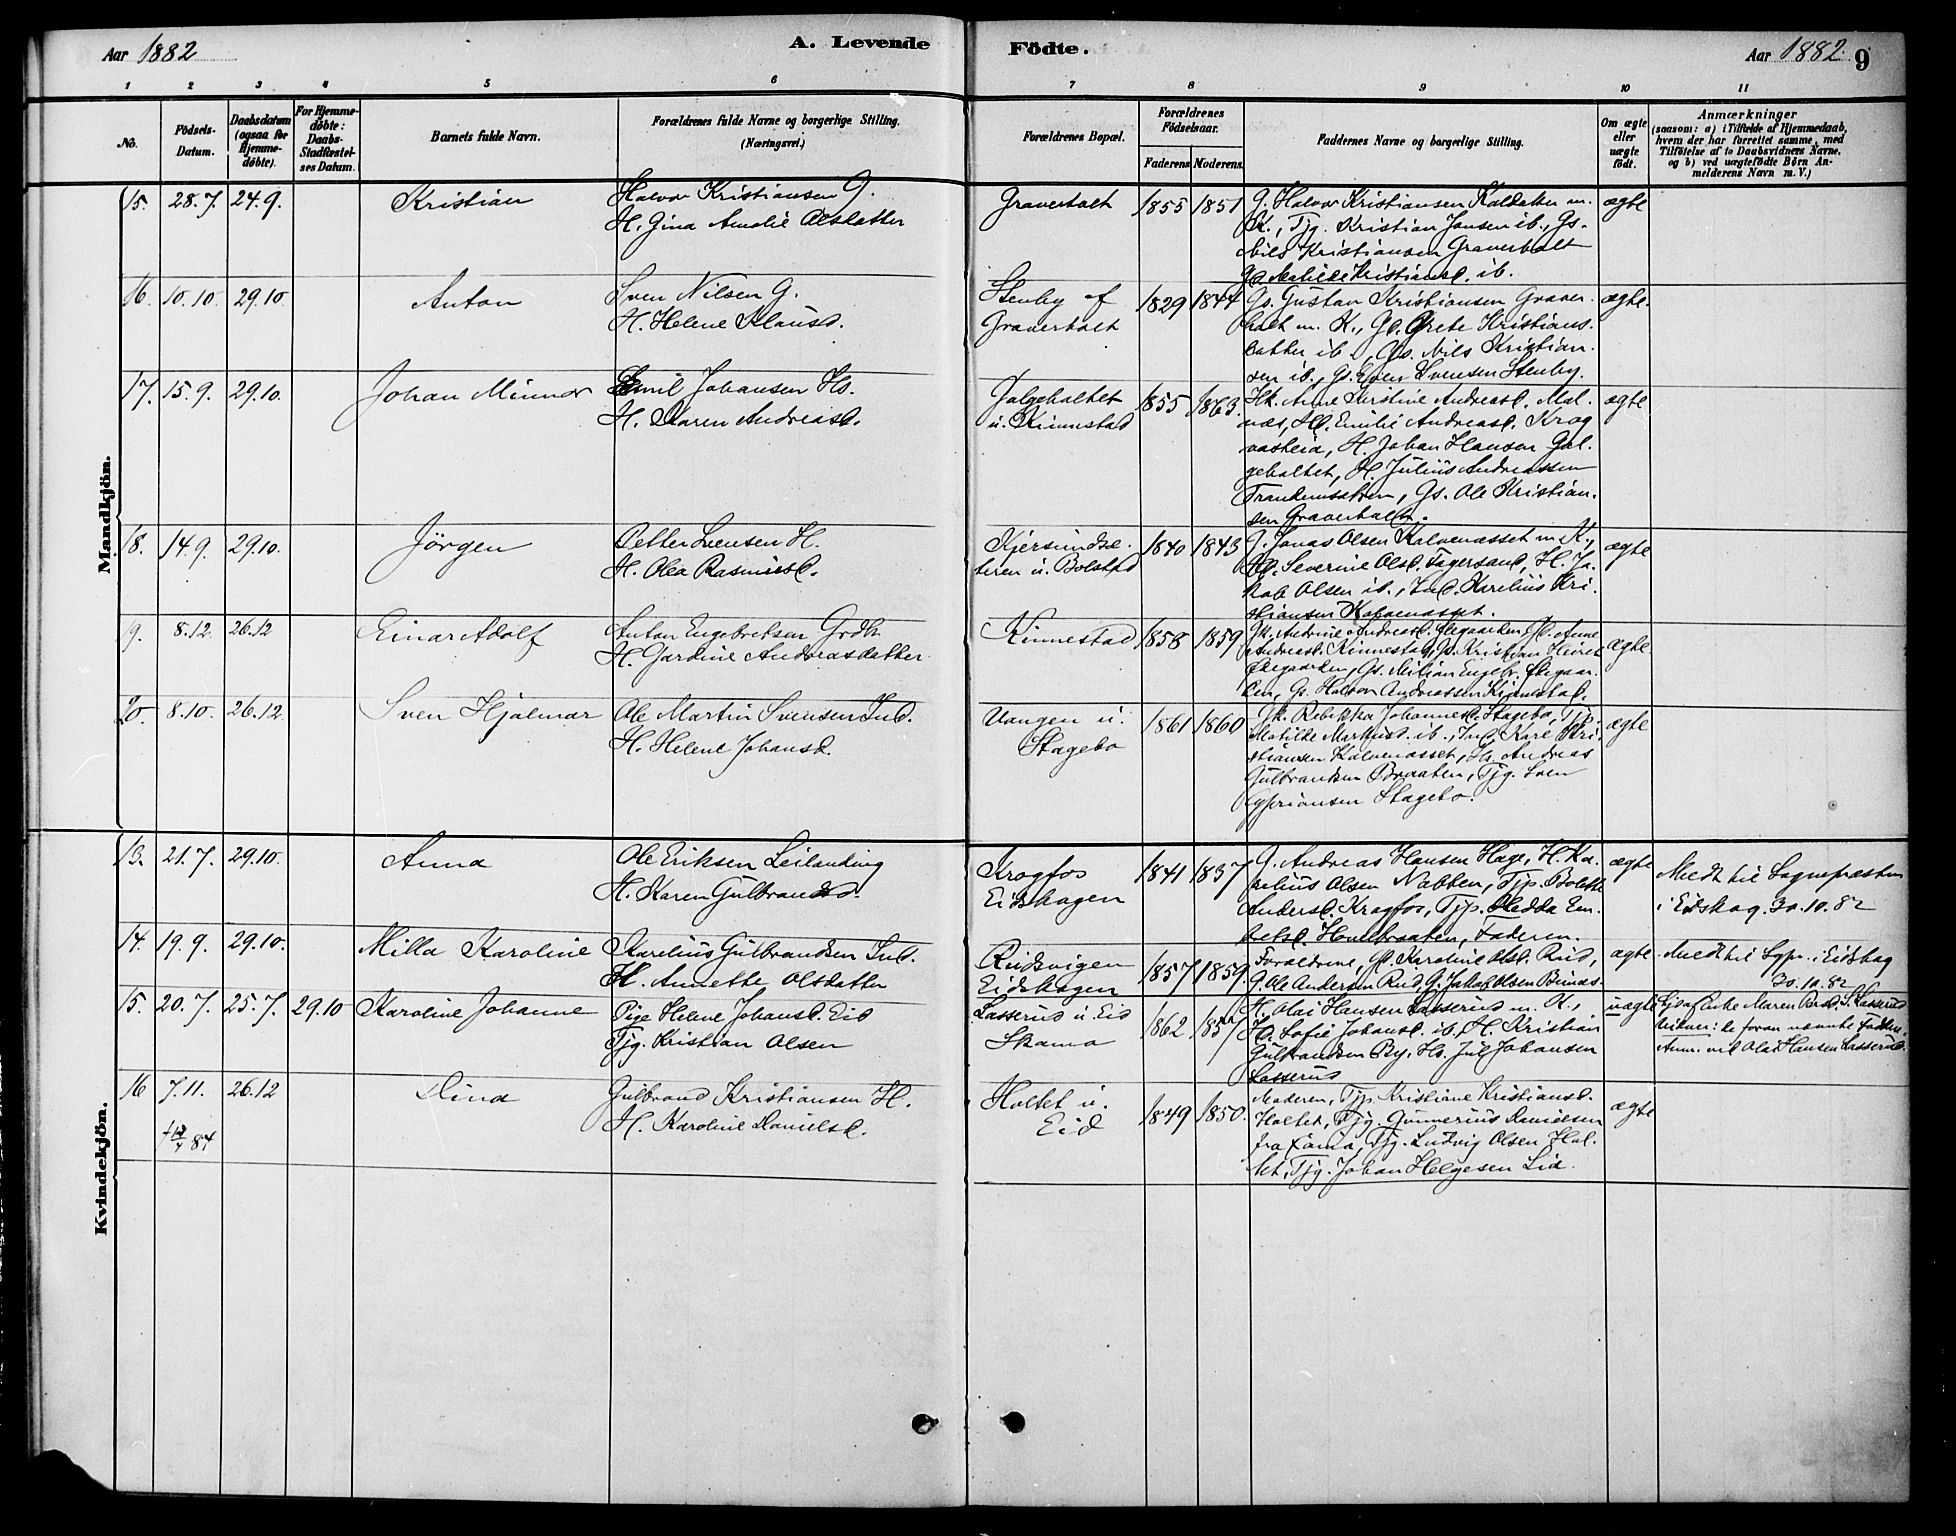 Aar 1882
A. Levende
Födte.
Aar 1882.
9
1 2 3 4 5 6 7 8 9 10 11
No.
Födsels-
Datum.
Daabsdatum
(ogsaa for
Hjemme-
döbte).
For Hjemme-
döbte:
Daabs-
Stadfæstel-
ses Datum.
Barnets fulde Navn.
Forældrenes fulde Navne og borgerlige Stilling.
(Næringsvei.)
Forældrenes Bopæl.
Forældrenes
Födselsaar.
Faderens.
Moderens.
Faddernes Navne og borgerlige Stilling.
Om ægte
eller
uægte
födt.
Anmærkninger
(saasom: a) i Tilfælde af Hjemmedaab,
hvem der har forrettet samme, med
Tilföielse af to Daabsvidners Navne,
og b) ved uægtefödte Börn An-
melderens Navn m. V.)
Mandkjön.
15. 28.7. 24.9. Kristian
Halvor Kristiansen G.
H. Gina Amalie Olsdatter
Graverholt 1855 1851
G. Halvor Kristiansen m.
K., Tjg. Kristian Jansen ib., Gs.
Nils Kristiansen Graverholt
Gd. Matilde Kristiansd. ib.
ægte
16. 10.10. 29.10. Anton
Sven Nilsen G.
H. Helene Klausd.
Stenby af
Graverholt
1829 1844
Gs. Gustav Kristiansen Graver-
holt m. K., Gd. Grete Kristians-
datter ib., Gs. Nils Kristian-
sen ib., Gs. Sven Svensen Stenby.
ægte.
17. 15.9. 29.10. Johan Minnor
Emil Johansen Hs.
H. Karen Andreasd.
Galgeholtet
u. Kinnestad
1855 1863.
Hk. Anne Kirstine Andreasd.
Hd. Emilie Andreasd. Krog
H. Johan Hansen Gal-
geholtet, H. Julius Andreassen
Gs. Ole Kristian-
sen Graverholt.
ægte
18. 14.9. 29.10. Jörgen
Petter Svensen H.
H. Olea Rasmusd.
Kjersundsæ-
teren u. Bolstad
1840 1843
G. Jonas Olsen Kalvenæsset m. K.,
Severine Olsd. H. Ja-
kob Olsen ib., Ind. Karelius Kri-
stiansen Kalvenæsset.
ægte
19. 8.12. 26.12 Einar Adolf
Anton Engebretsen Grdbr.
H. Gardine Andreasdatter.
Kinnestad 1858 1859
Gk. Andrine Andreasd. Gd. Anne
Andreasd. Kinnestad, Gs. Kristian
Gs. Milian Engebr.
Gs. Halvor Andreassen Kinnestad.
ægte.
20. 8.10. 26.12. Sven Hjalmar
Ole Martin Svensen Ind.
H. Helene Johansd.
Vangen u.
Skagebo
1861 1860
Gk. Rebekka Johannesd. Skagebo, Tjp.
Matilde Markusd. ib., Ind. Karl Kri-
stiansen Kalvenæsset, Hs. Andreas
Gulbrandsen Braaten, Tjg. Sven
Cypriansen Skagebo.
ægte
Kvindekjön.
13. 21.7. 29.10. Anna
Ole Eriksen Leilending
H. Karen Gulbrandsd.
Krogfos
Eidskogen
1841 1837
G. Andreas Hansen Hage, H. Ka-
relius Olsen Nabben, Tjp. Bolette
Andersd. Krogfos, Tjp. Hedda Em-
bretsd. Faderen.
ægte
Medt til Sognepræsten
i Eidskog 30.10.82
14. 19.9. 29.10. Milla Karoline
Karelius Gulbrandsen Ind.
H. Annette Olsdatter
Rudsvigen
Eidskogen
1857 1859.
Forældrene, Gd. Karoline Olsd. Rud,
G. Ole Andersen Rud, G. Jakob Olsen
ægte.
Medt til Sgpr. i Eidskog
30.10.82
15. 20.7. 25.7. 29.10 Karoline Johanne
Pige Helene Johansd. Eid
Tjg. Kristian Olsen
Lasserud u. Eid
Skamo
1862 1857
H. Olai Hansen Lasserud m. K.,
Hd. Sofie Johansd. ib., H. Kristian
Gulbrandsen By, Hs. Jul Johansen
Lasserud
uægte
Hj.d. af Enke Maren Lasserud
Vidner: de foran nævnte Faddere.
Anm. ved Olai Hansen Lasserud.
16 7.11. 26.12 Dina
Gulbrand Kristiansen H.
H. Karoline Danielsd.
Holtet u.
Eid
1849 1850.
Moderen, Tjp. Kristiane Kristiansd.
Holtet, Tjg. Gunnerius Danielsen
fra Tjg. Ludvig Olsen Hol-
tet, Tjg. Johan Helgesen Lid.
ægte
84